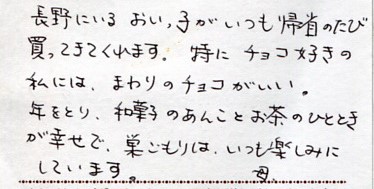 長野にいる おいっ子がいつも帰省のたび
買ってきてくれます。特にチョコ好きの
私には、まわりのチョコがいい。
年をとり、和菓子のあんことお茶のひととき
が幸せで、巣ごもりは、いつも楽しみに
しています。 母